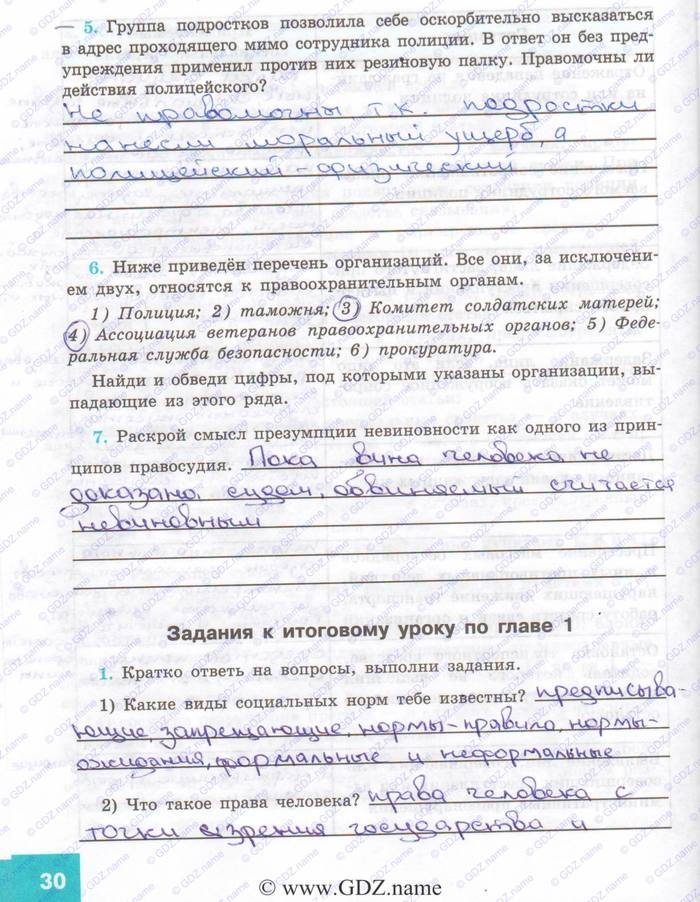 5. Группа подростков позволила себе оскорбительно высказаться
в адрес проходящего мимо сотрудника полиции. В ответ он без пред-
упреждения применил против них резиновую палку. Правомочны ли
действия полицейского?
не правомочны т.к. подростки
нанесли моральный ущерб, а
полицейский - физический
6. Ниже приведён перечень организаций. Все они, за исключени-
ем двух, относятся к правоохранительным органам.
1) Полиция; 2) таможня; 3) Комитет солдатских матерей;
4) Ассоциация ветеранов правоохранительных органов; 5) Феде-
ральная служба безопасности; 6) прокуратура.
Найди и обведи цифры, под которыми указаны организации, вы-
падающие из этого ряда.
7. Раскрой смысл презумпции невиновности как одного из прин-
ципов правосудия. Пока вина человека не
доказана судом, обвиняемый считается
невиновным
Задания к итоговому уроку по главе 1
1. Кратко ответь на вопросы, выполни задания.
1) Какие виды социальных норм тебе известны? предписыва-
ющие, запрещающие, нормы-правила, нормы-
ожидания, формальные и неформальные
2) Что такое права человека? права человека с
точки зрения государства и
30
© www.GDZ.name